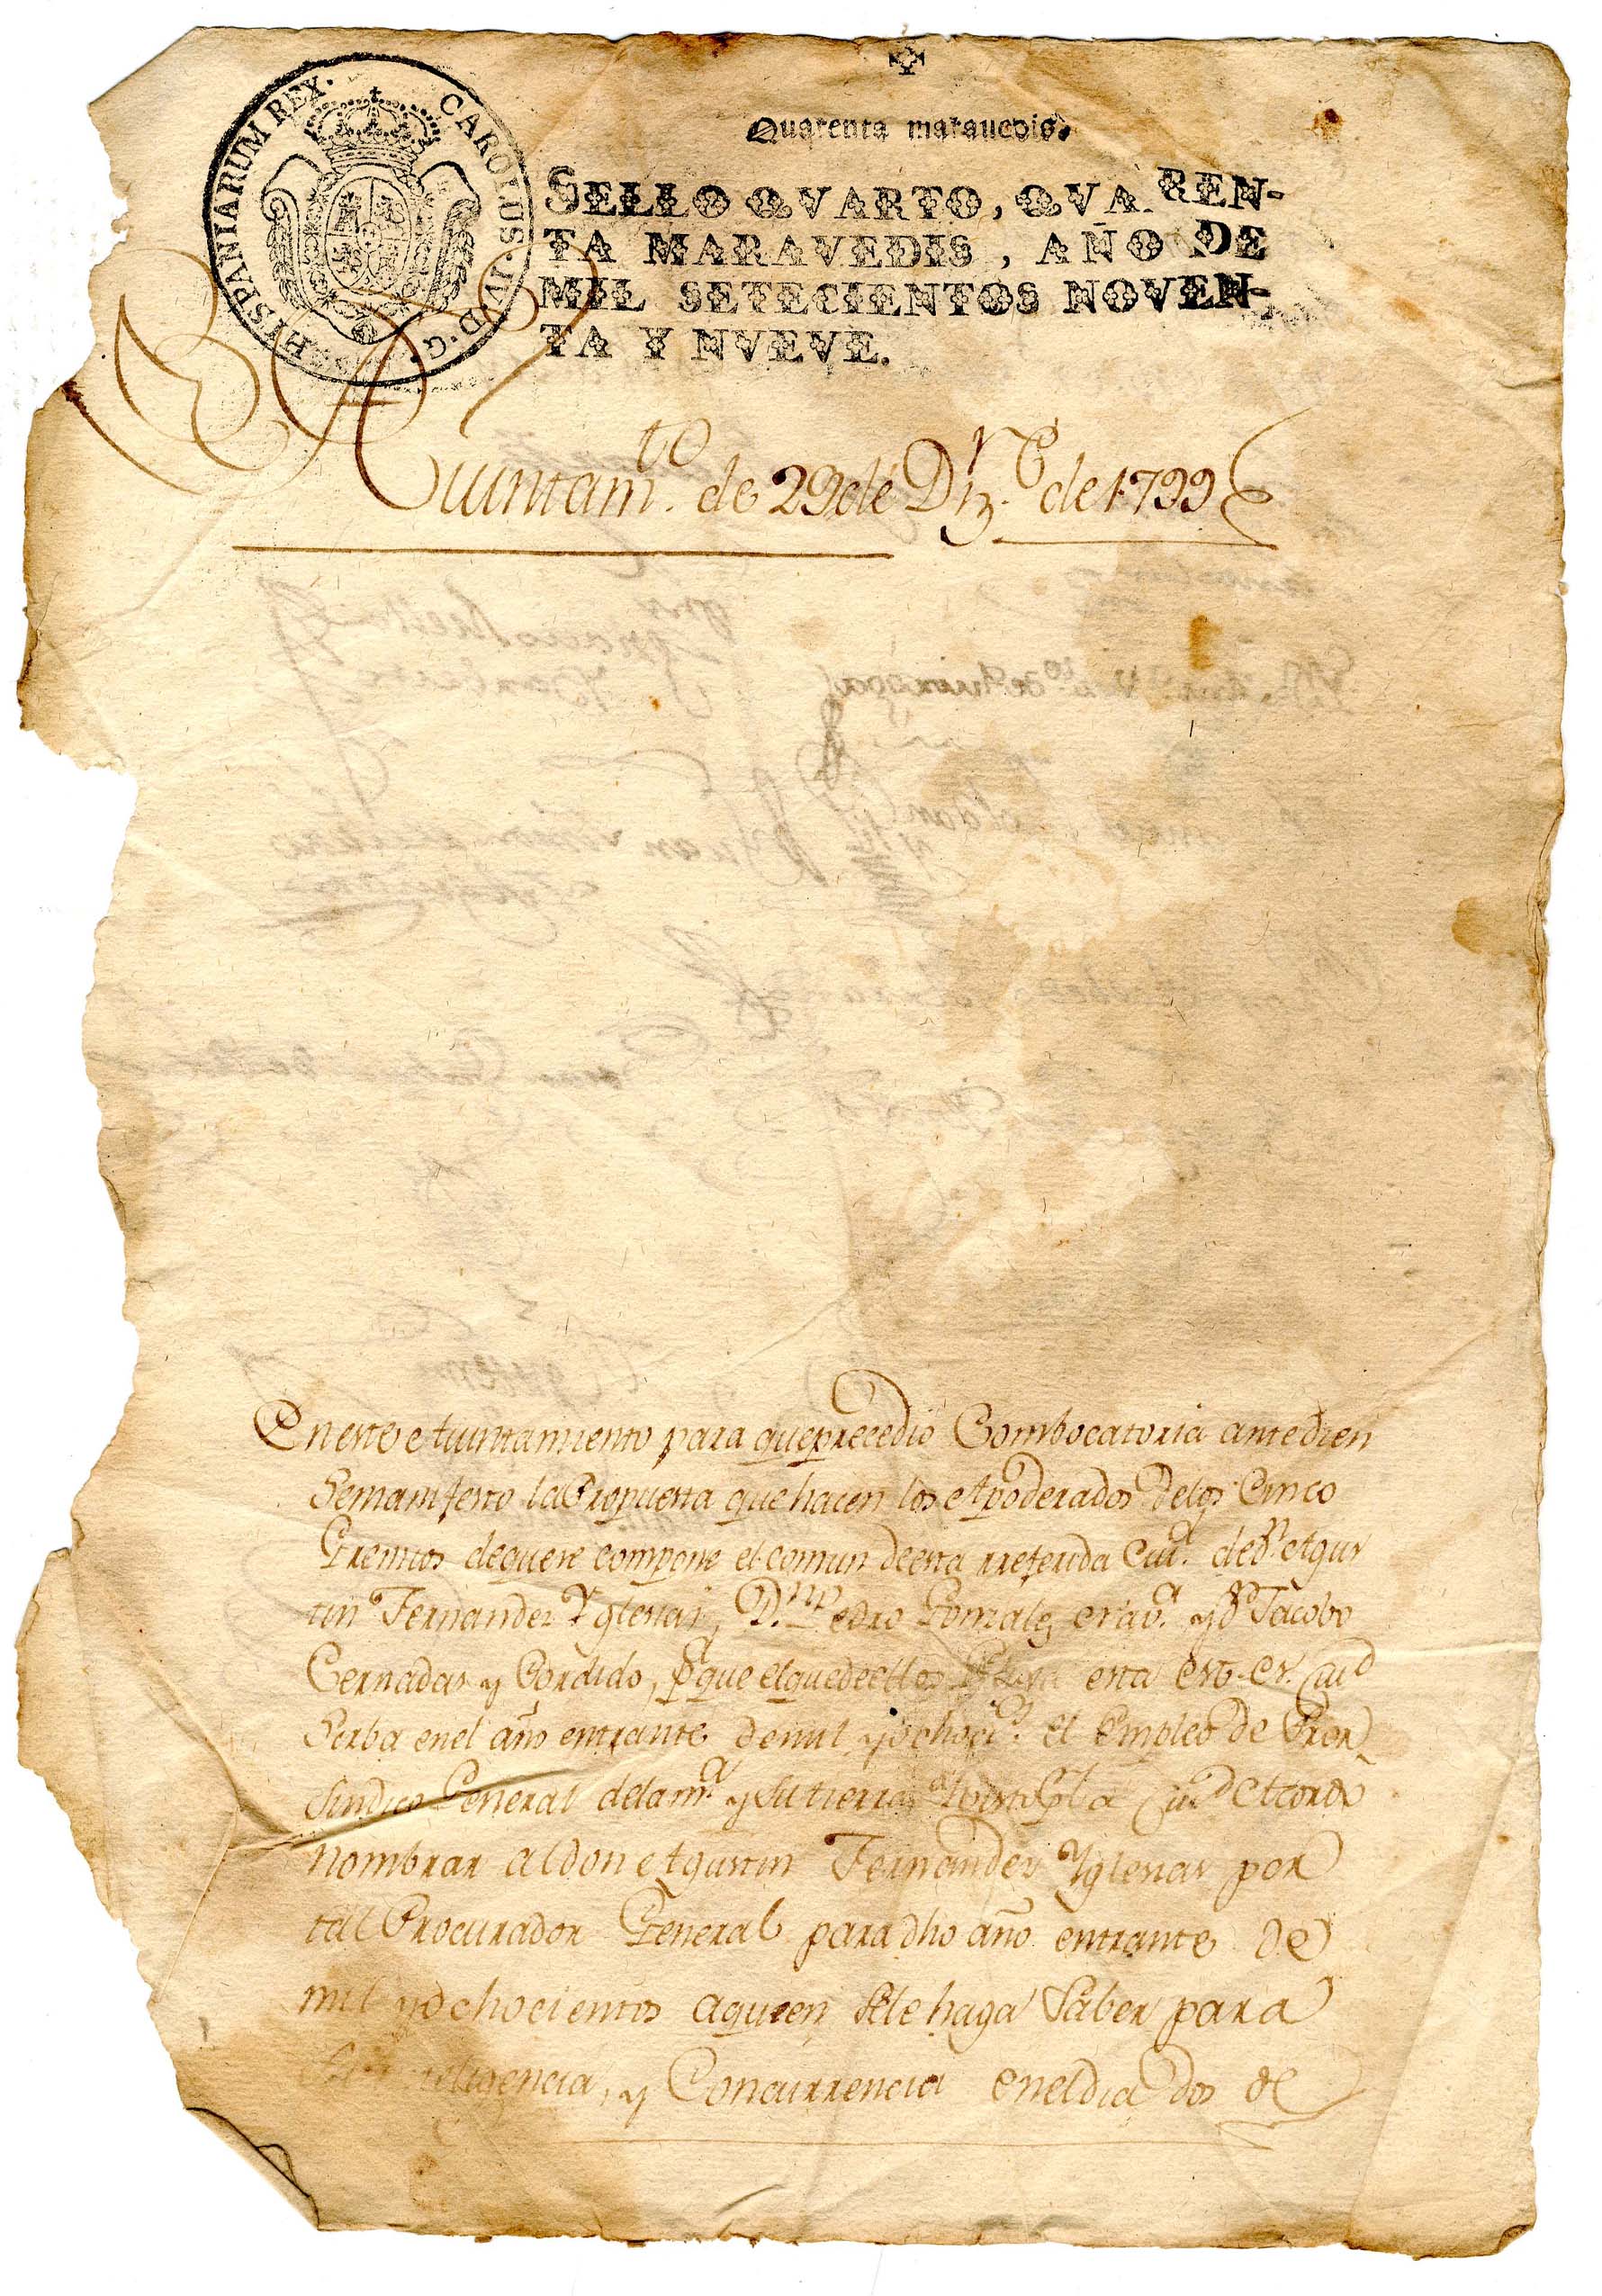 Quarenta marauedis.
SELLO QVARTO, QVAREN-
TA MARAVEDIS, AÑO DE
MIL SETECIENTOS NOVEN-
TA Y NVEVE.
CAROLUS·IV·D·G·HISPANIARUM REX·
Aiuntam.to de 29 de Diz.re de 1799
En este Aiuntamiento para que precedió Combocatoria antedien
Se manifesto la Propuesta que hacen los Apoderados de los Cinco
Gremios de que se compone el comun de esta rreferida Ciu.d de D.n Agus
tin Fernandez Yglesias, D.n Pedro Gonzalez y D.n Jacobo
Cernadas y Cordido, p.a que el que de ellos esta Ciud
Serba en el año entrante de mil y ochoci.s el Empleo de Pror
Sindico General de la m.a y su tierra Acordó
nombrar al don Agustin Fernandez Yglesias por
tal Procurador General para dho año entrante de
mil y ochocientos a quien se le haga Saber para
inteligencia, y Concurrencia en el dia dos de